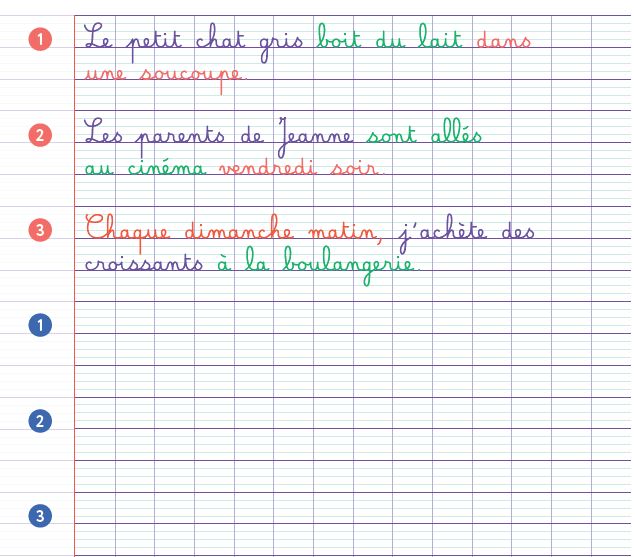 1 Le petit chat gris boit du lait dans
une soucoupe.
2 Les parents de Jeanne sont allés
au cinéma vendredi soir.
3 Chaque dimanche matin, j'achète des
croissants à la boulangerie.
1
2
3